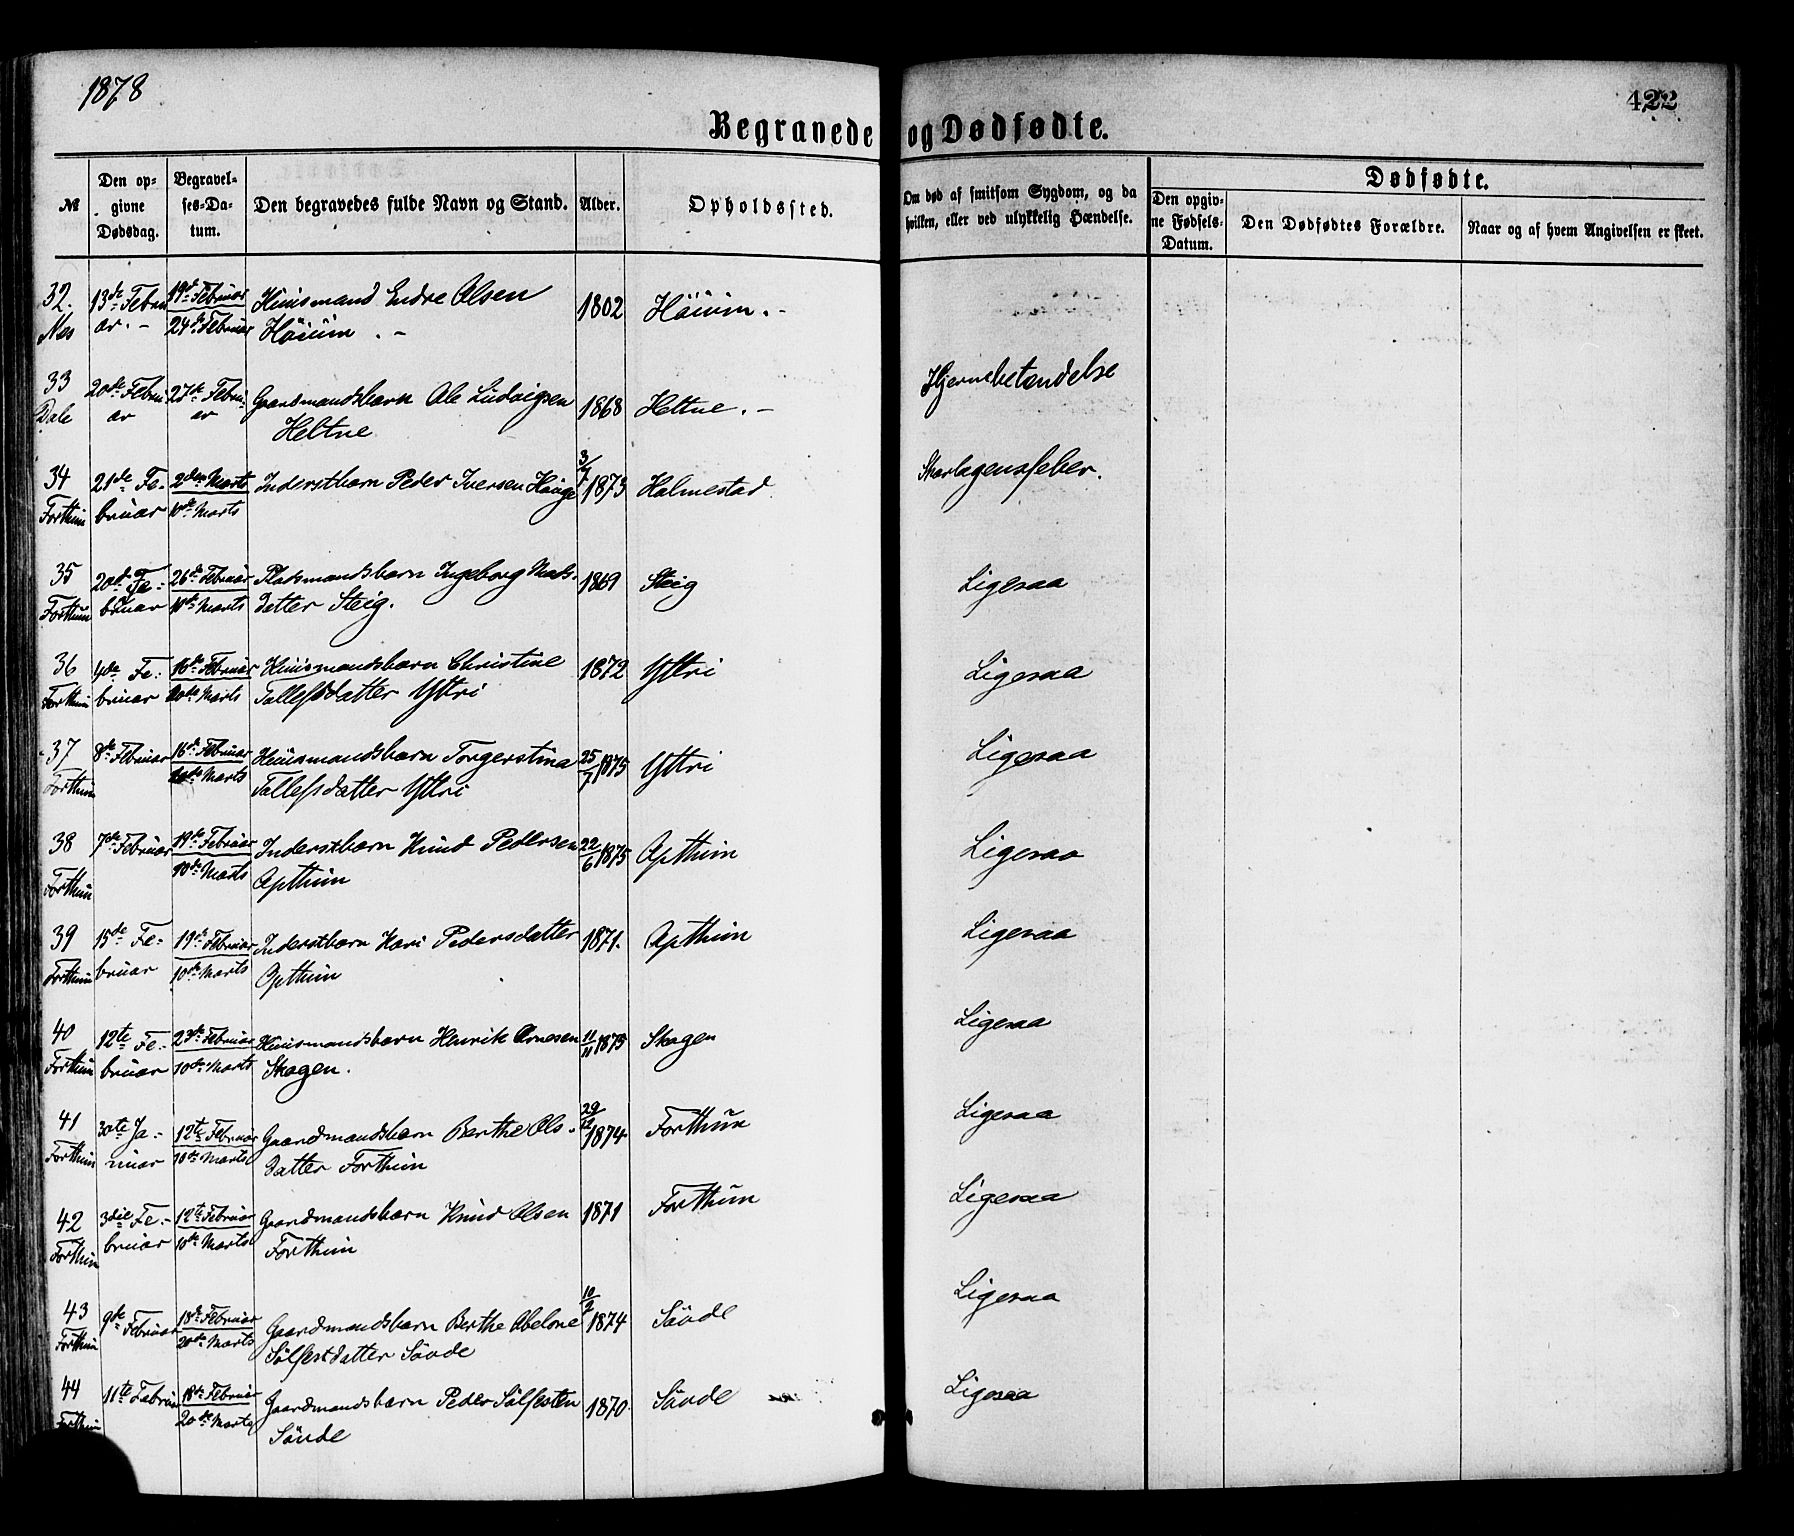 1878
422
Begravede og Dødfødte.
№
Den opgivne Dødsdag.
Begravelses-Datum.
Den begravedes fulde Navn og Stand.
Alder.
Opholdssted.
Om død af smitsom Sygdom, og da hvilken, eller ved ulykkelig Hændelse.
Dødfødte.
Den opgivne Fødsels-Datum.
Den Dødfødtes Forældre.
Naar og af hvem Angivelsen er skeet.
32. 13de Febru 19de Februar Huusmand Endre Olsen 1802 Höium . -
Nes ar. - 24de Februar Höium . -
33 20de Febru 27de Febru- Gaardmandsbarn Ole Ludvigsen 1868 Heltne . - Hjernebetændelse
Dale ar ar Heltne
34 21de Fe- 2den Marts Inderstbarn Peder Iversen Hauge 3/7 1873 Halmestad Skarlagensfeber.
Forthun bruar 10de Marts
35 20de Fe- 26de Februar Pladsmandsbarn Ingeborg Mats- 1869 Steig Ligesaa
Forthun bruar 10de Marts datter Steig.
36 4de Fe- 16de Februar Huusmandsbarn Christine 1872 Yttri Ligesaa
Forthun bruar 20de Marts Tollefsdatter Yttri
37 8de Februar 16de Februar Huusmandsbarn Torgerstina 25/7 1875 Yttri Ligesaa
Forthun Marts Tollefsdatter Yttri
38 7de Februar 19de Februar Inderstbarn Knud Pedersen 22/6 1875 Opthun Ligesaa
Forthun 10de Marts Opthun
39 15de Fe- 19de Februar Inderstbarn Kari Pedersdatter 1871. Opthun Ligesaa
Forthun bruar 10de Marts Opthun
40 12te Fe- 23de Februar Huusmandsbarn Henrik Arnesen 11/11 1875 Skagen Ligesaa
Forthun bruar 10de Marts Skagen.
41 30te Ja- 12te Februar Gaardmandsbarn Berthe Ols- 29/12 1874. Forthun Ligesaa
Forthun nuar 10de Marts datter Forthun
42 3die Fe- 12te Februar Gaardmandsbarn Knud Olsen 1871 Forthun Ligesaa
Forthun bruar 10de Marts Forthun
43 9de Februar 18de Februar Gaardmandsbarn Berthe Abelone 10/2 1874 Sövde Ligesaa
Forthun 20de Marts Sölfestdatter Sövde
44 11te Februar 18de Februar Gaardmandsbarn Peder Sölfesten 1870. Sövde Ligesaa
Forthun 20de Marts Sövde